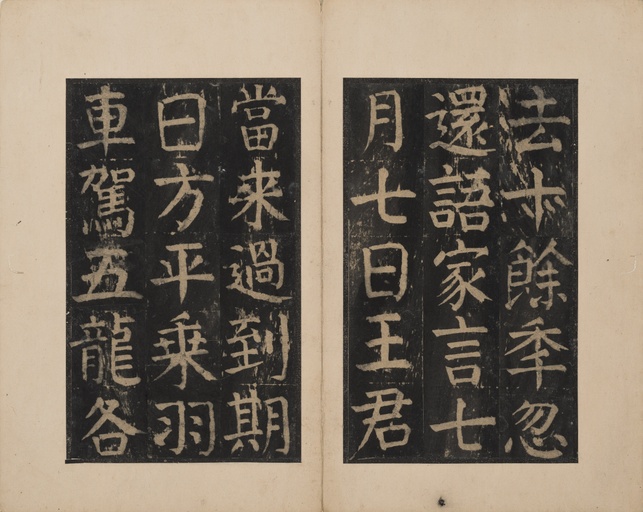 去十餘年忽
還語家言七
月七日王君
當来過到期
日方平乗羽
車駕五龍各